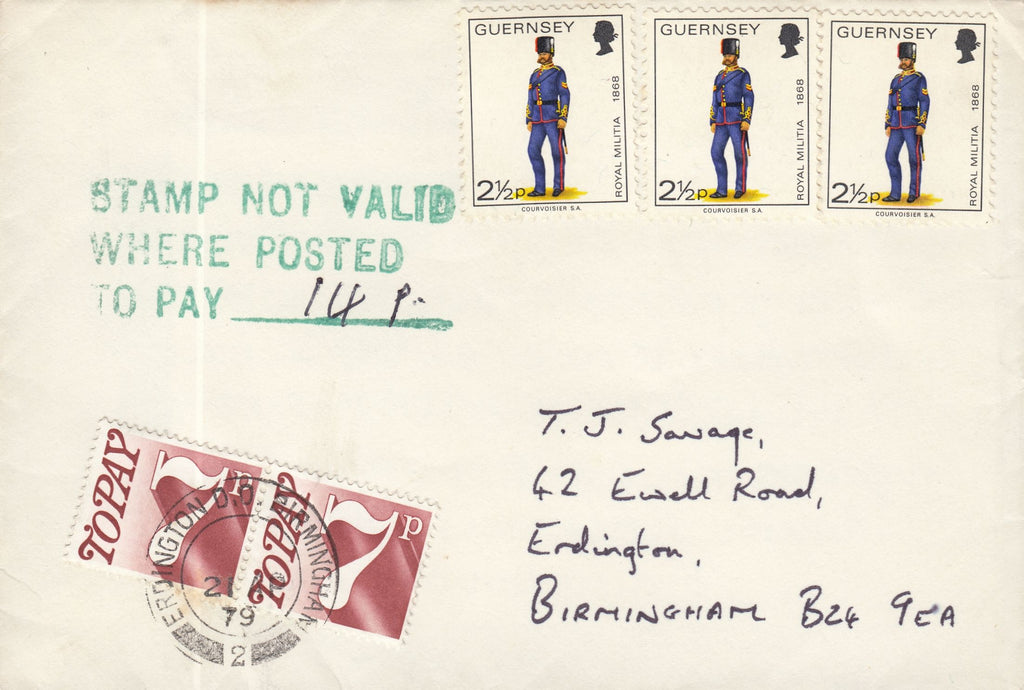 GUERNSEY
ROYAL MILITIA 1868
2½p
COURVOISIER S.A.
GUERNSEY
ROYAL MILITIA 1868
2½p
COURVOISIER S.A.
GUERNSEY
ROYAL MILITIA 1868
2½p
COURVOISIER S.A.
STAMP NOT VALID
WHERE POSTED
TO PAY 14 p.
T. J. Savage,
42 Ewell Road,
Erdington,
BIRMINGHAM B24 9EA
TO PAY
7p
TO PAY
7p
ERDINGTON D.O. BIRMINGHAM
21
79
2